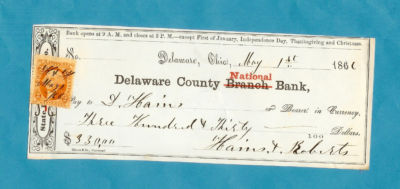 Bank opens at 9 A.M. and closes at 3 P.M.—except First of January, Independence Day, Thanksgiving and Christmas.
No. Delaware, Ohio, May 1st 1866
National
Delaware County Branch Bank,
Pay to D. Hains or Bearer in Currency,
Three Hundred & Thirty 100 Dollars.
$330.00 Hains & Roberts